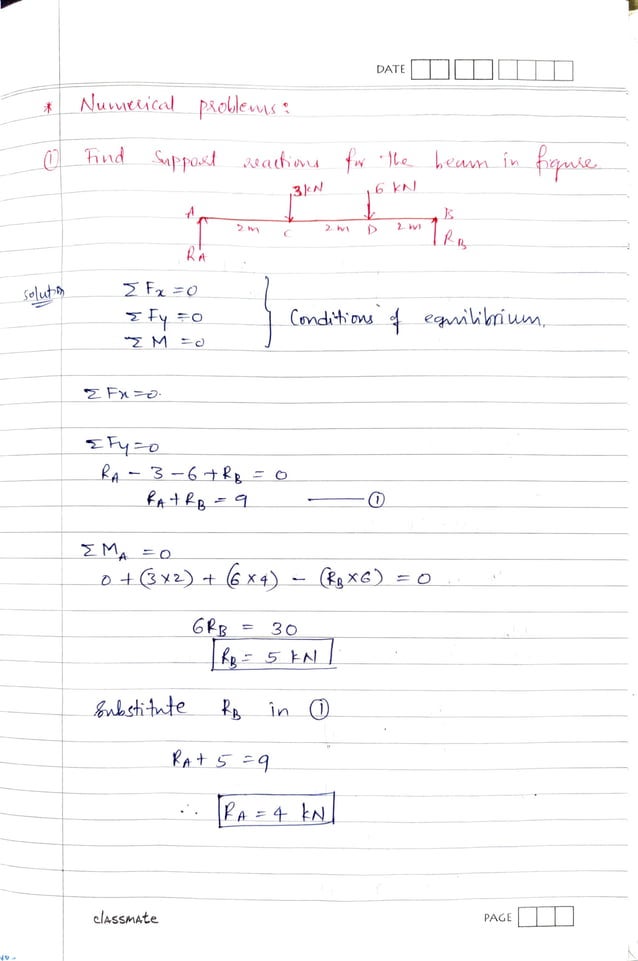 DATE
* Numerical problems:
① Find support reactions for the beam in figure
3kN 6 kN
A B
2m C 2m D 2m
RA RB
solution
Σ Fx = 0
Σ Fy = 0 Conditions of equilibrium.
Σ M = 0
Σ Fx = 0.
Σ Fy = 0
RA - 3 - 6 + RB = 0
RA + RB = 9 ①
Σ MA = 0
0 + (3 x 2) + (6 x 4) - (RB x 6) = 0
6RB = 30
RB = 5 kN
Substitute RB in ①
RA + 5 = 9
∴ RA = 4 kN
classmate
PAGE